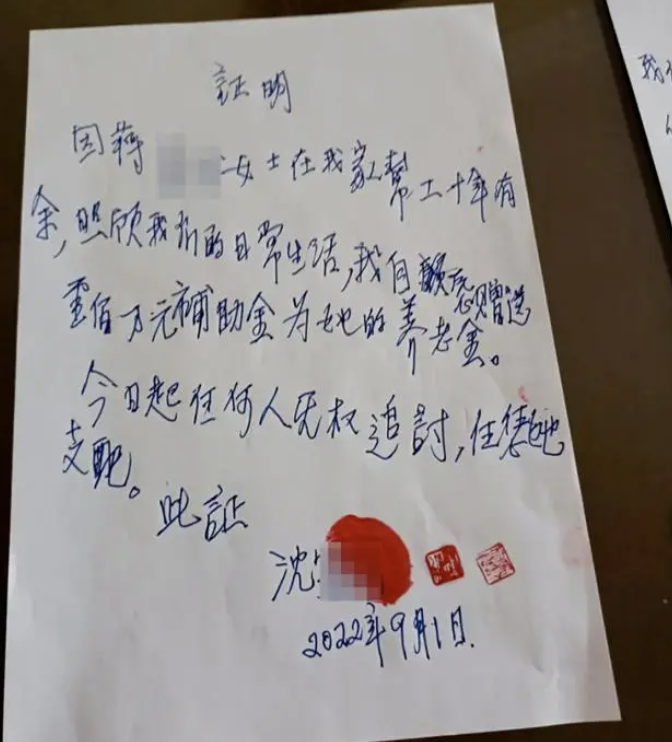 証明
因蒋 女士在我家帮工十年有
余,照顾我们的日常生活,我自願意赠送
壹佰万元補助金为她的养老金。
今日起任何人无权追討,任凭她
支配。
此証
沈
2022年9月1日.
我